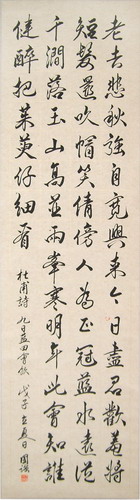 老去悲秋強自寬興來今日盡君歡羞將
短髮還吹帽笑倩傍人為正冠藍水遠從
千澗落玉山高並兩峯寒明年此會知誰
健醉把茱萸仔細看
杜甫詩 九日藍田會飲 戊子立夏日